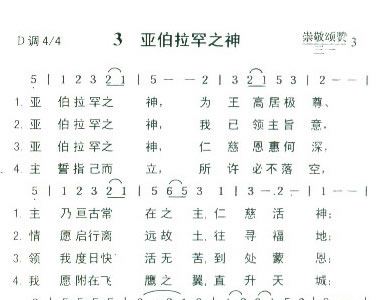 D调4/4
3 亚伯拉罕之神
崇敬颂赞
3
5 | 1 2 3 2 1 | 5 — — 5 | 1 2 3 2 1 | 5 — —
1. 亚 伯拉罕之 神， 为 王高居极 尊、
2. 亚 伯拉罕之 神， 我 已领主旨 意，
3. 亚 伯拉罕之 神， 仁 慈恩惠何 深，
4. 主 誓指己而 立， 所 许必不落 空，
1. 主 乃亘古常 在之主，仁 慈活 神；
2. 情 愿启行离 远故土，往 寻福 地；
3. 领 我度日快 活无苦，到 处蒙 恩；
4. 我 愿附在飞 鹰之翼，直 升天 城；